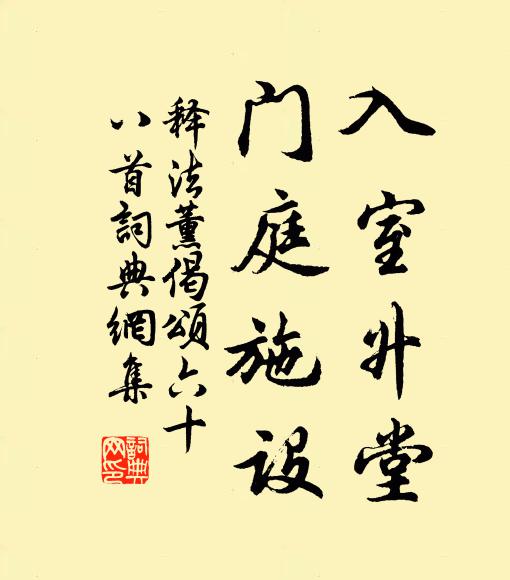 入室升堂
门庭施设
释法薰偈颂六十
八首詞典網集
詞典網印